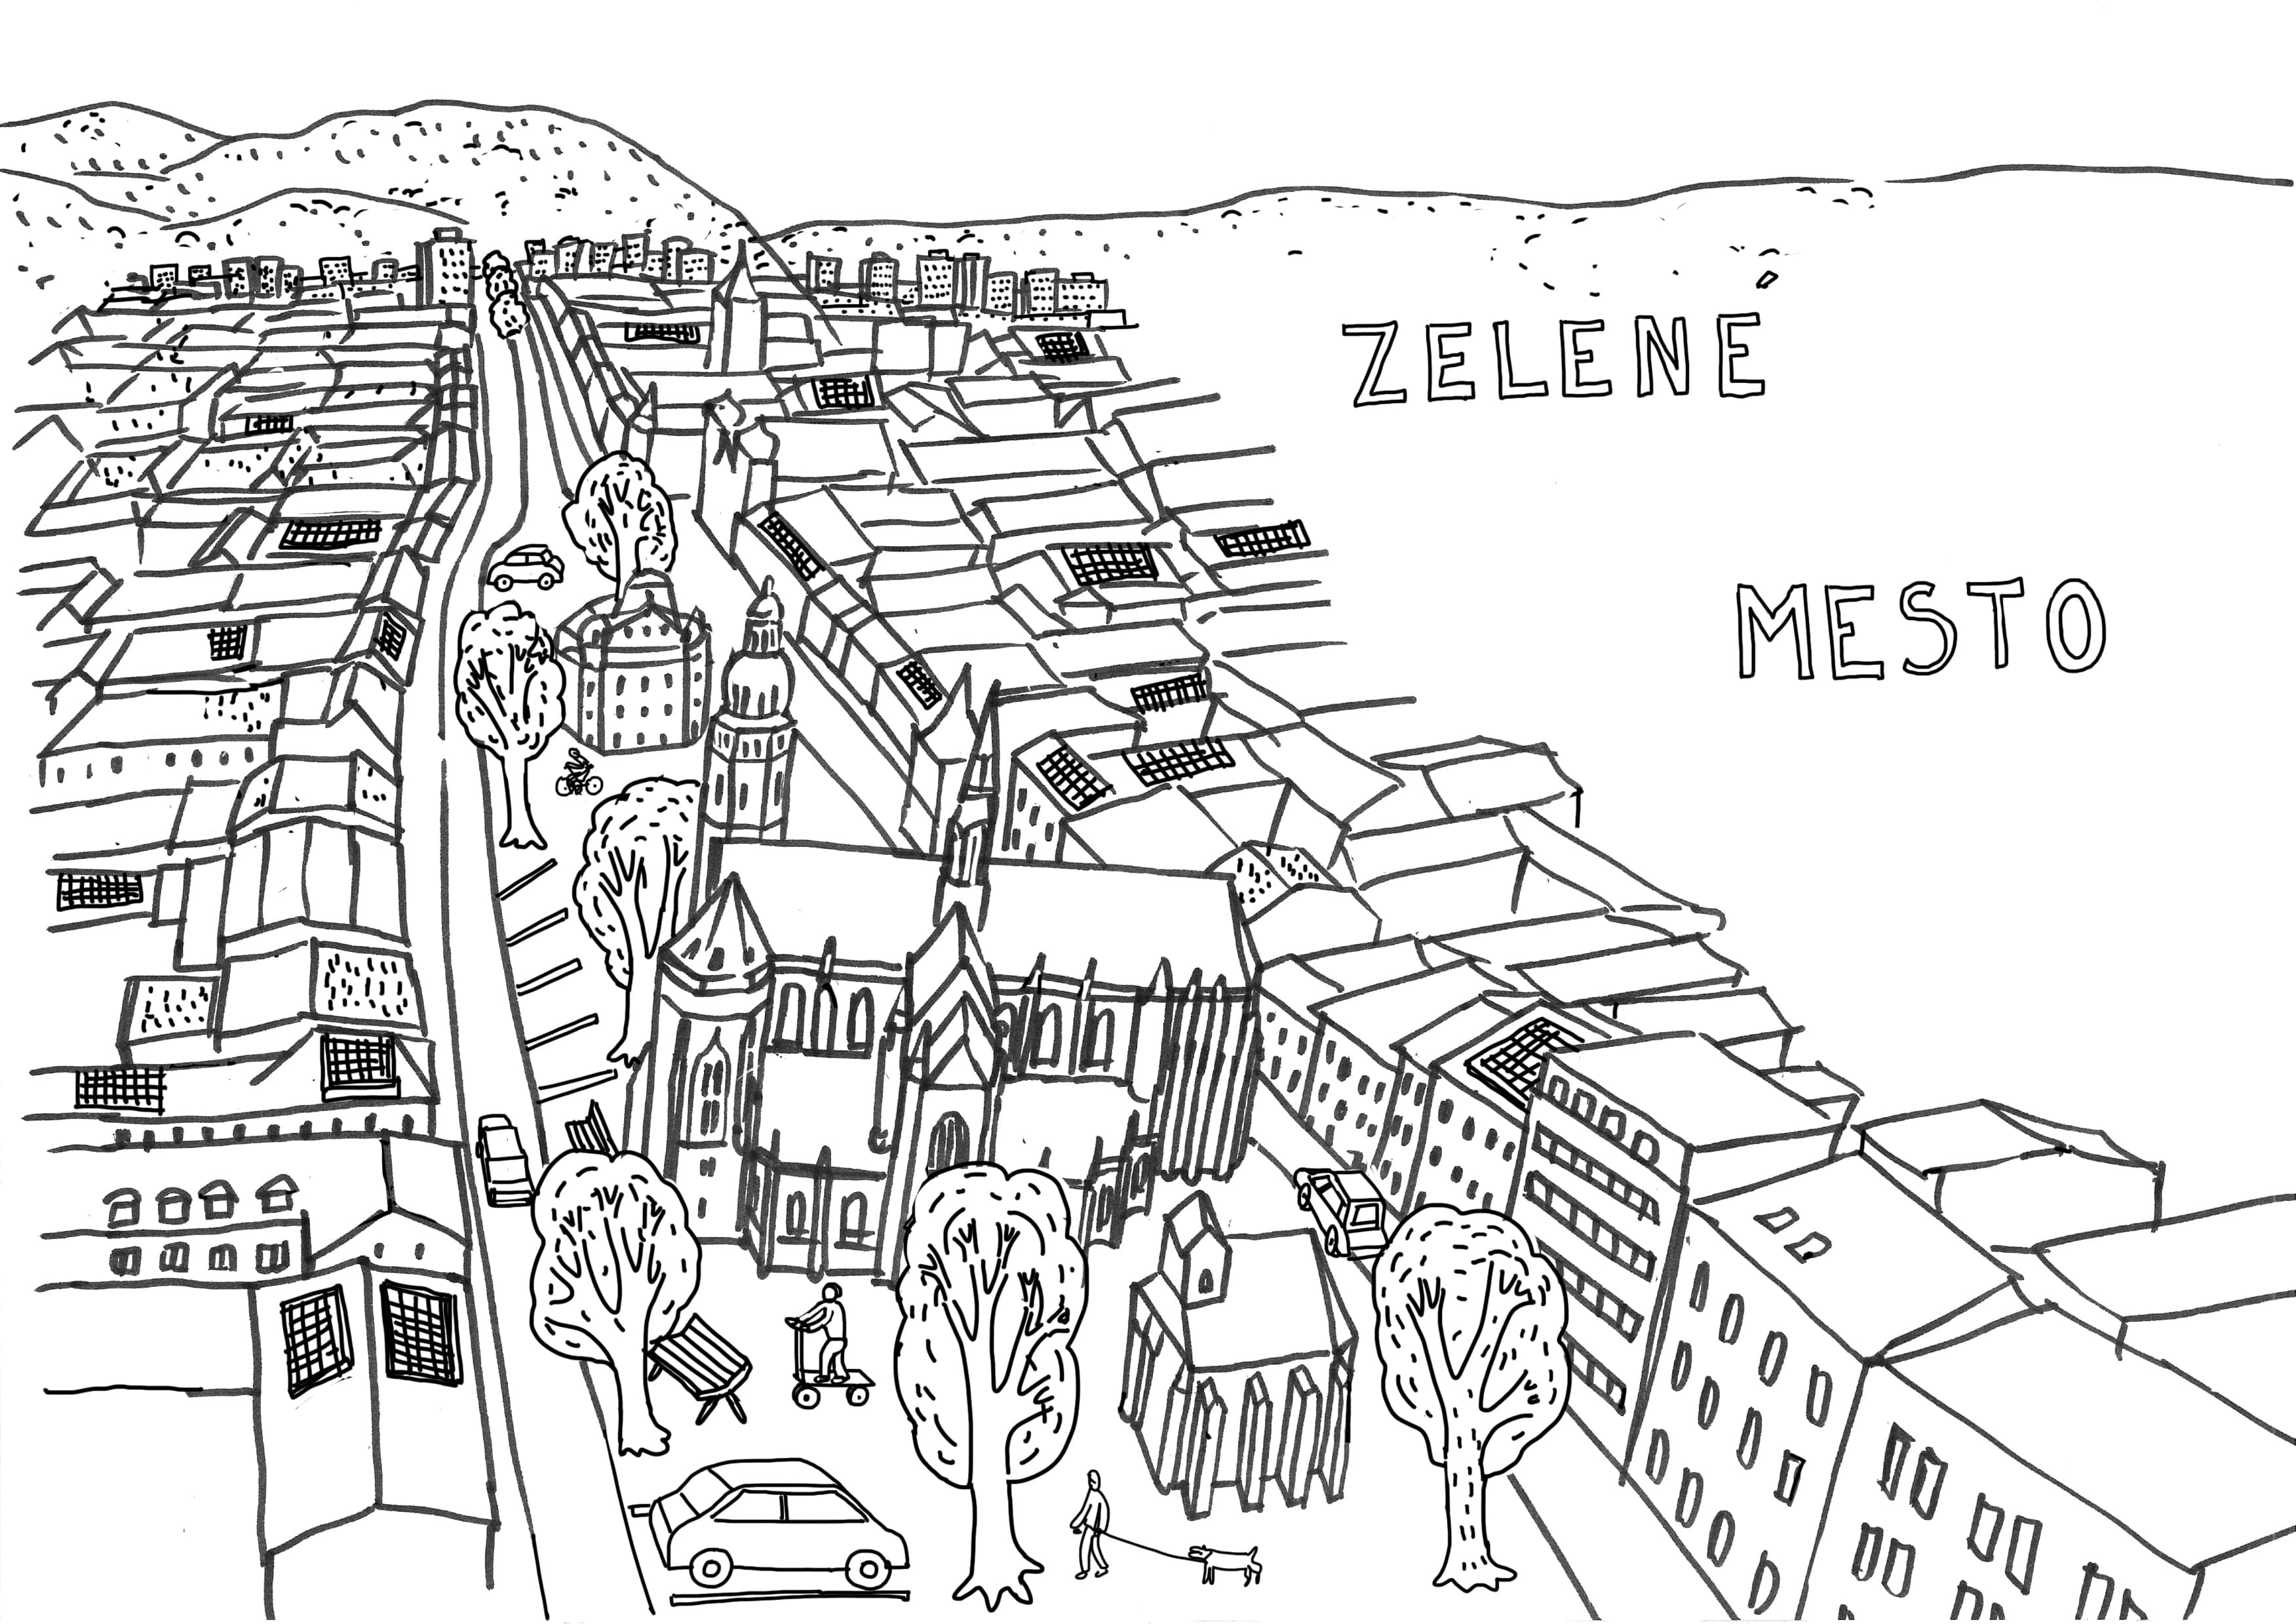 ZELENÉ
MESTO